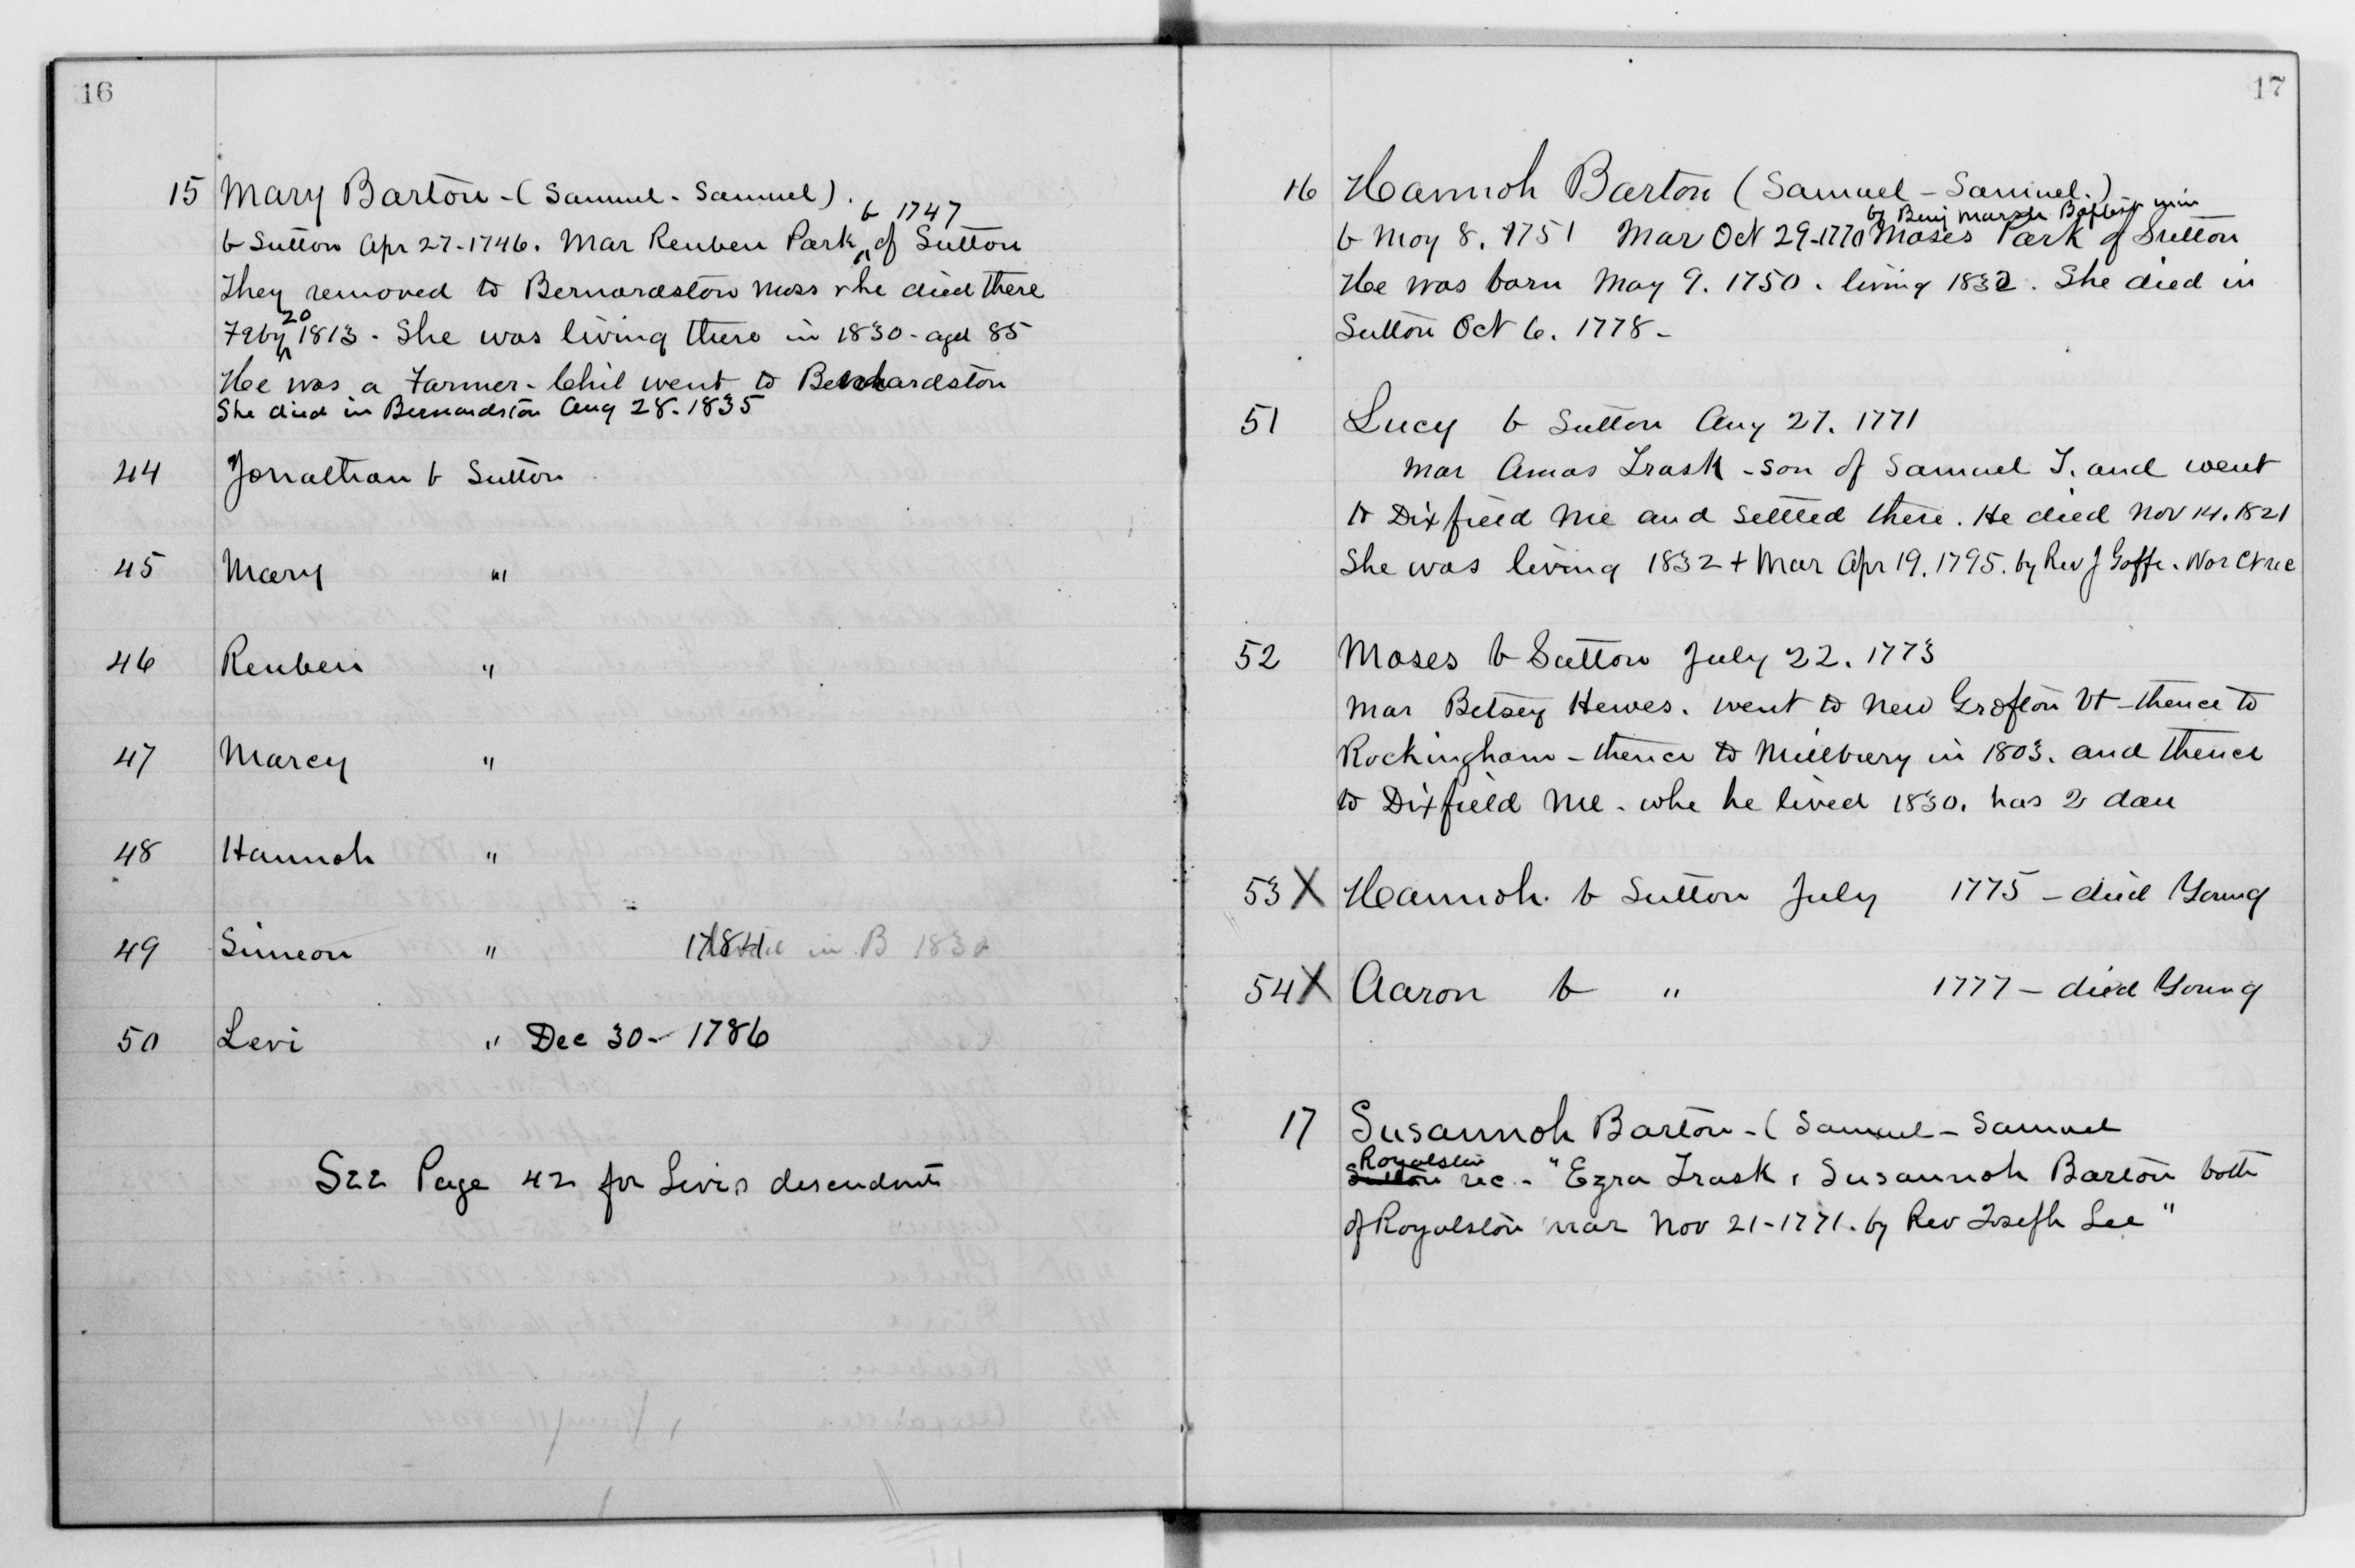 16
15 Mary Barton - (Samuel - Samuel).
b 1747
b Sutton Apr 27-1746. Mar Reuben Park ^ of Sutton
They removed to Bernardston Mass & he died there
20
Feby ^ 1813 - She was living there in 1830 - aged 85
He was a Farmer - Chil went to Bernardston
She died in Bernardston Aug 28. 1835
44 Jonathan b Sutton
45 Mary "
46 Reuben "
47 Marcy "
48 Hannah "
49 Simeon " 1784 in B 1830
50 Levi " Dec 30 - 1786
See Page 42 for Levis descendants
17
16 Hannah Barton (Samuel - Samuel.)
by Benj Marsh Baptist min
b May 8. 1751 Mar Oct 29-1770 Moses Park of Sutton
He was born May 9. 1750. living 1832. She died in
Sutton Oct 6. 1778 -
51 Lucy b Sutton Aug 27. 1771
mar Amos Trask - son of Samuel T. and went
to Dixfield Me and settled there. He died Nov 14. 1821
She was living 1832 + Mar Apr 19. 1795. by Rev J Goffe. Wor Ct rec
52 Moses b Sutton July 22. 1773
mar Betsey Hewes. went to New Grafton Vt - thence to
Rockingham - thence to Millbury in 1803. and thence
to Dixfield Me - whe he lived 1830. has 2 dau
53 X Hannah. b Sutton July 1775 - died Young
54 X Aaron b " 1777 - died Young
17 Susannah Barton - (Samuel - Samuel
Royalston
Sutton rec. - "Ezra Trask, Susannah Barton both
of Royalston mar Nov 21-1771. by Rev Joseph Lee"